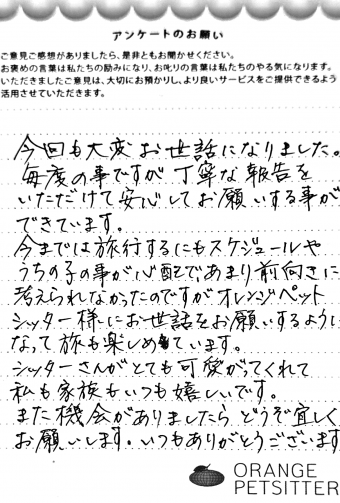 アンケートのお願い
ご意見ご感想がありましたら、是非ともお聞かせください。
お褒めの言葉は私たちの励みになり、お叱りの言葉は私たちのやる気になります。
いただきましたご意見は、大切にお預かりし、より良いサービスをご提供できるよう
活用させていただきます。
今回も大変お世話になりました。
毎度の事ですが丁寧な報告を
いただけて安心してお願いする事が
できています。
今までは旅行するにもスケジュールや
うちの子の事が心配で、あまり前向きに
考えられなかったのですがオレンジペット
シッター様にお世話をお願いするように
なって旅も楽しめています。
シッターさんがとても可愛がってくれて
私も家族もいつも嬉しいです。
また機会がありましたらどうぞ宜しく
お願いします。いつもありがとうございます
ORANGE
PETSITTER